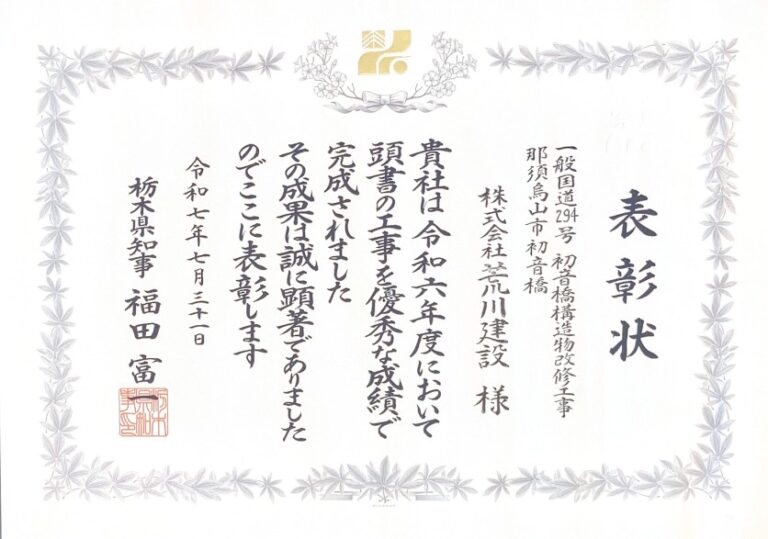 表彰状
一般国道294号 初音橋構造物改修工事
那須烏山市初音橋
株式会社荒川建設 様
貴社は令和六年度において
頭書の工事を優秀な成績で
完成されました
その成果は誠に顕著でありました
のでここに表彰します
令和七年七月三十一日
栃木県知事 福田富一